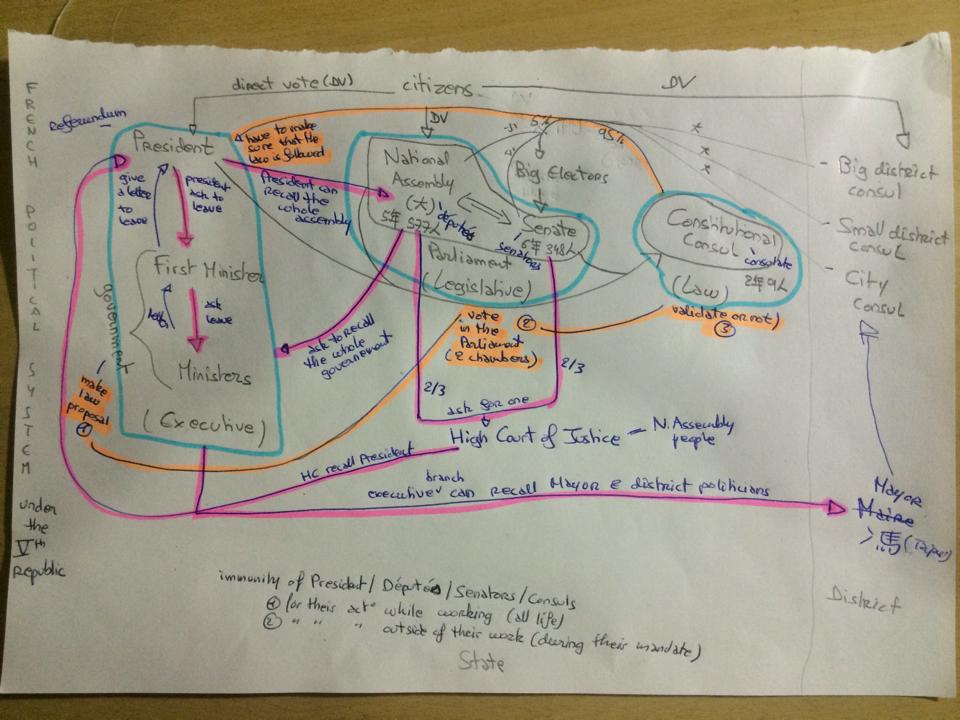 FRENCH POLITICAL SYSTEM
under
the
Vth
Republic
direct vote (DV)
citizens
DV
DV
Referendum
President
give
a letter
to
leave
president
ask to
leave
First Minister
government
ask
leave
Ministers
(Executive)
have to make
sure that the
law is followed
President can
recall the
whole
assembly
National
Assembly
(大)
députés
5年 577人
5%
95%
Big Electors
Senate
6年 348人
senators
Parliament
(Legislative)
Constitutional
Consul
consulate
2年9人
(Law)
validate or not)
③
vote
in the
Parliament
(2 chambers)
②
ask to recall
the whole
governement
make
law
proposal
①
2/3
2/3
ask for one
High Court of Justice - N. Assembly
people
HC recall President
branch
executive can recall Mayor & district politicians
- Big district
consul
- Small district
consul
- City
consul
Mayor
Maire
馬
District
immunity of President / Députés / Senators / Consuls
① for their act° while working (all life)
② " " " outside of their work (during their mandate)
State